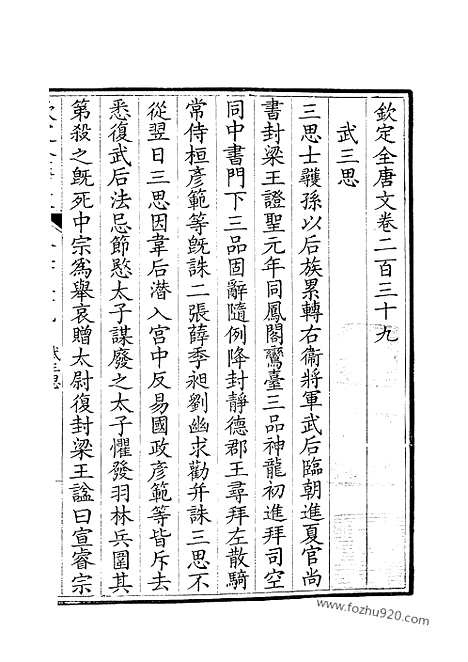 欽定全唐文卷二百三十九
武三思
三思士彠孫以后族累轉右衞將軍武后臨朝進夏官尚
書封梁王證聖元年同鳳閣鸞臺三品神龍初進拜司空
同中書門下三品固辭隨例降封靜德郡王尋拜左散騎
常侍桓彥範等旣誅二張薛季昶劉幽求勸幷誅三思不
從翌日三思因韋后潛入宮中反易國政彥範等皆斥去
悉復武后法忌節愍太子謀廢之太子懼發羽林兵圍其
第殺之旣死中宗爲舉哀贈太尉復封梁王諡曰宣睿宗
武三思
www.fozhu920.com